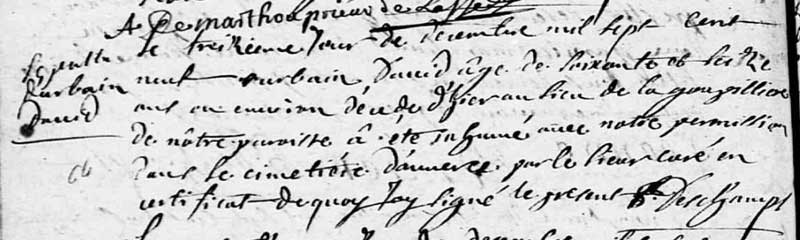 A De marthon prieur de
Sepultu le treizieme Jour de decembre mil sept cent
durbain neuf urbain David âge de soixante et seize
David ans ou environ décédé d'hier au lieu de la goupilliere
de nôtre paroisse â été inhumé avec notre permission
dans le cimetiére par le sieur curé en
certificat de quoy Jay signé le present Deschamps